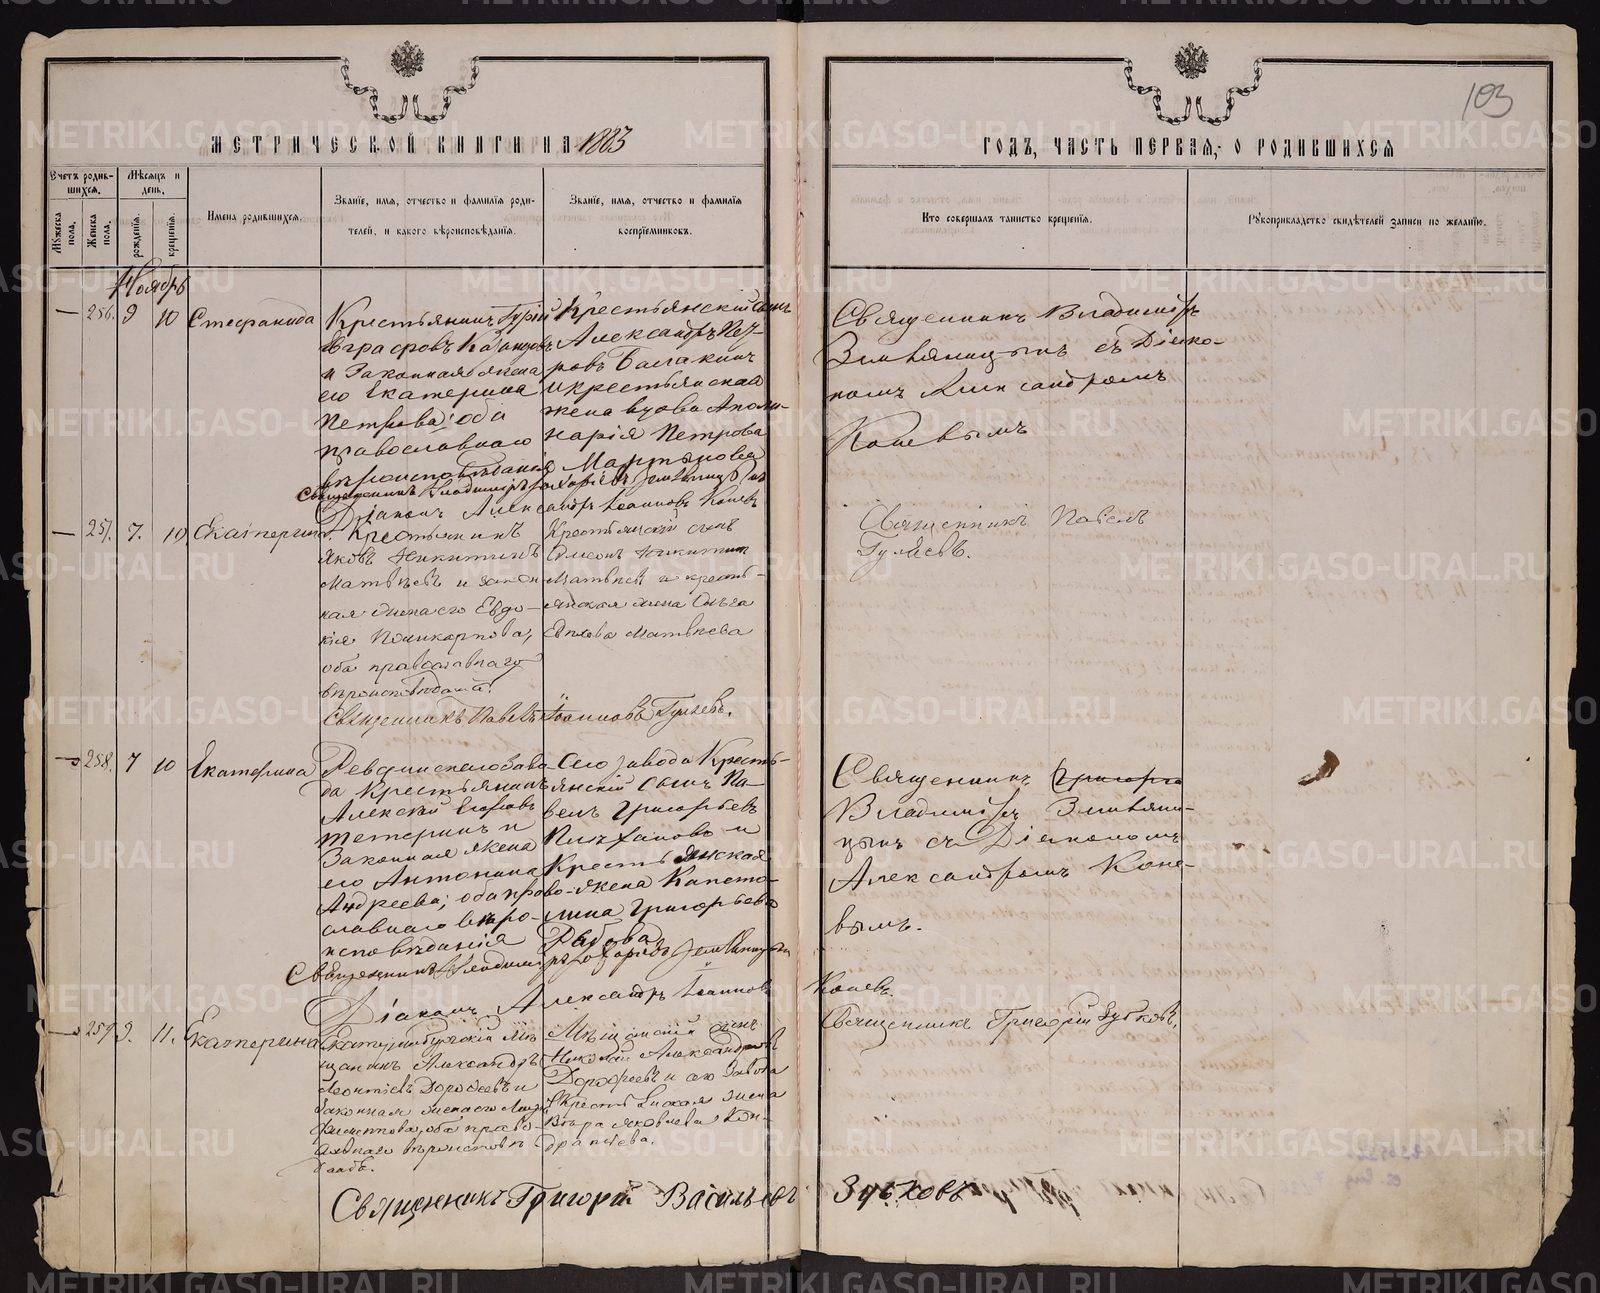 103
МЕТРИЧЕСКОЙ КНИГИ НА 1883
ГОДЪ, ЧАСТЬ ПЕРВАЯ, О РОДИВШИХСЯ
Счетъ родив-
шихся.
Мѣсяцъ и
день.
Мужеска
пола.
Женска
пола.
рожденія.
крещенія.
Имена родившихся.
Званіе, имя, отчество и фамилія роди-
телей, и какого вѣроисповѣданія.
Званіе, имя, отчество и фамилія
воспріемниковъ.
Кто совершалъ таинство крещенія.
Рукоприкладство свидѣтелей записи по желанію.
Ноябрь
— 256. 9 10 Стефанида
Крестьянинъ Гурій
и Законная жена
его Екатерина
Петрова; оба
православнаго
вѣроисповѣданія
Крестьянскій сынъ
Александръ Пет-
ровъ Балакинъ
и крестьянская
жена вдова Аполи-
нарія Петрова
Мартынова
Священникъ Владиміръ
Земляницынъ съ Діако-
номъ Александромъ
Коневымъ
Священникъ Владиміръ Захаріевъ Земляницынъ
Діаконъ Александръ Іоанновъ Коневъ
— 257. 7. 10 Екатерина
Крестьянинъ
Яковъ Никитинъ
Матвѣевъ и закон-
ная жена его Евдо-
кія Поликарпова,
оба православнаго
вѣроисповѣданія.
Крестьянскій сынъ
Симеонъ Никитинъ
Матвѣевъ и кресть-
янская жена Ольга
Матвѣева
Священникъ Павелъ
Гуляевъ.
Священникъ Павелъ Іоанновъ Гуляевъ.
— 258. 7 10 Екатерина
Ревдинскаго заво-
да Крестьянинъ
Алексѣй Егоровъ
Тетеринъ и
Законная жена
его Антонина
Андреева; оба право-
славнаго вѣро-
исповѣданія
Сего завода Кресть-
янскій Сынъ Па-
велъ Григорьевъ
и
Крестьянская
жена Капето-
лина Григорьева
Рябова
Священникъ Григорій
Владиміръ Земляни-
цынъ съ Діакономъ
Александромъ Коне-
вымъ.
Священникъ Владиміръ Захаріевъ Земляницынъ
Діаконъ Александръ Іоанновъ Коневъ.
— 259 9. 11. Екатерина
Екатеринбургскій Мѣ-
щанинъ Александръ
Леонтіевъ Дорофеевъ и
законная жена его
оба право-
славнаго вѣроисповѣ-
Мѣщанскій сынъ
Николай Александровъ
Дорофеевъ и сего Завода
Крестьянская жена
Вѣра Яковлева Кон-
дратьева.
Священникъ Григорій Зубковъ.
Священникъ Григорій Васильевъ Зубковъ
METRIKI.GASO-URAL.RU